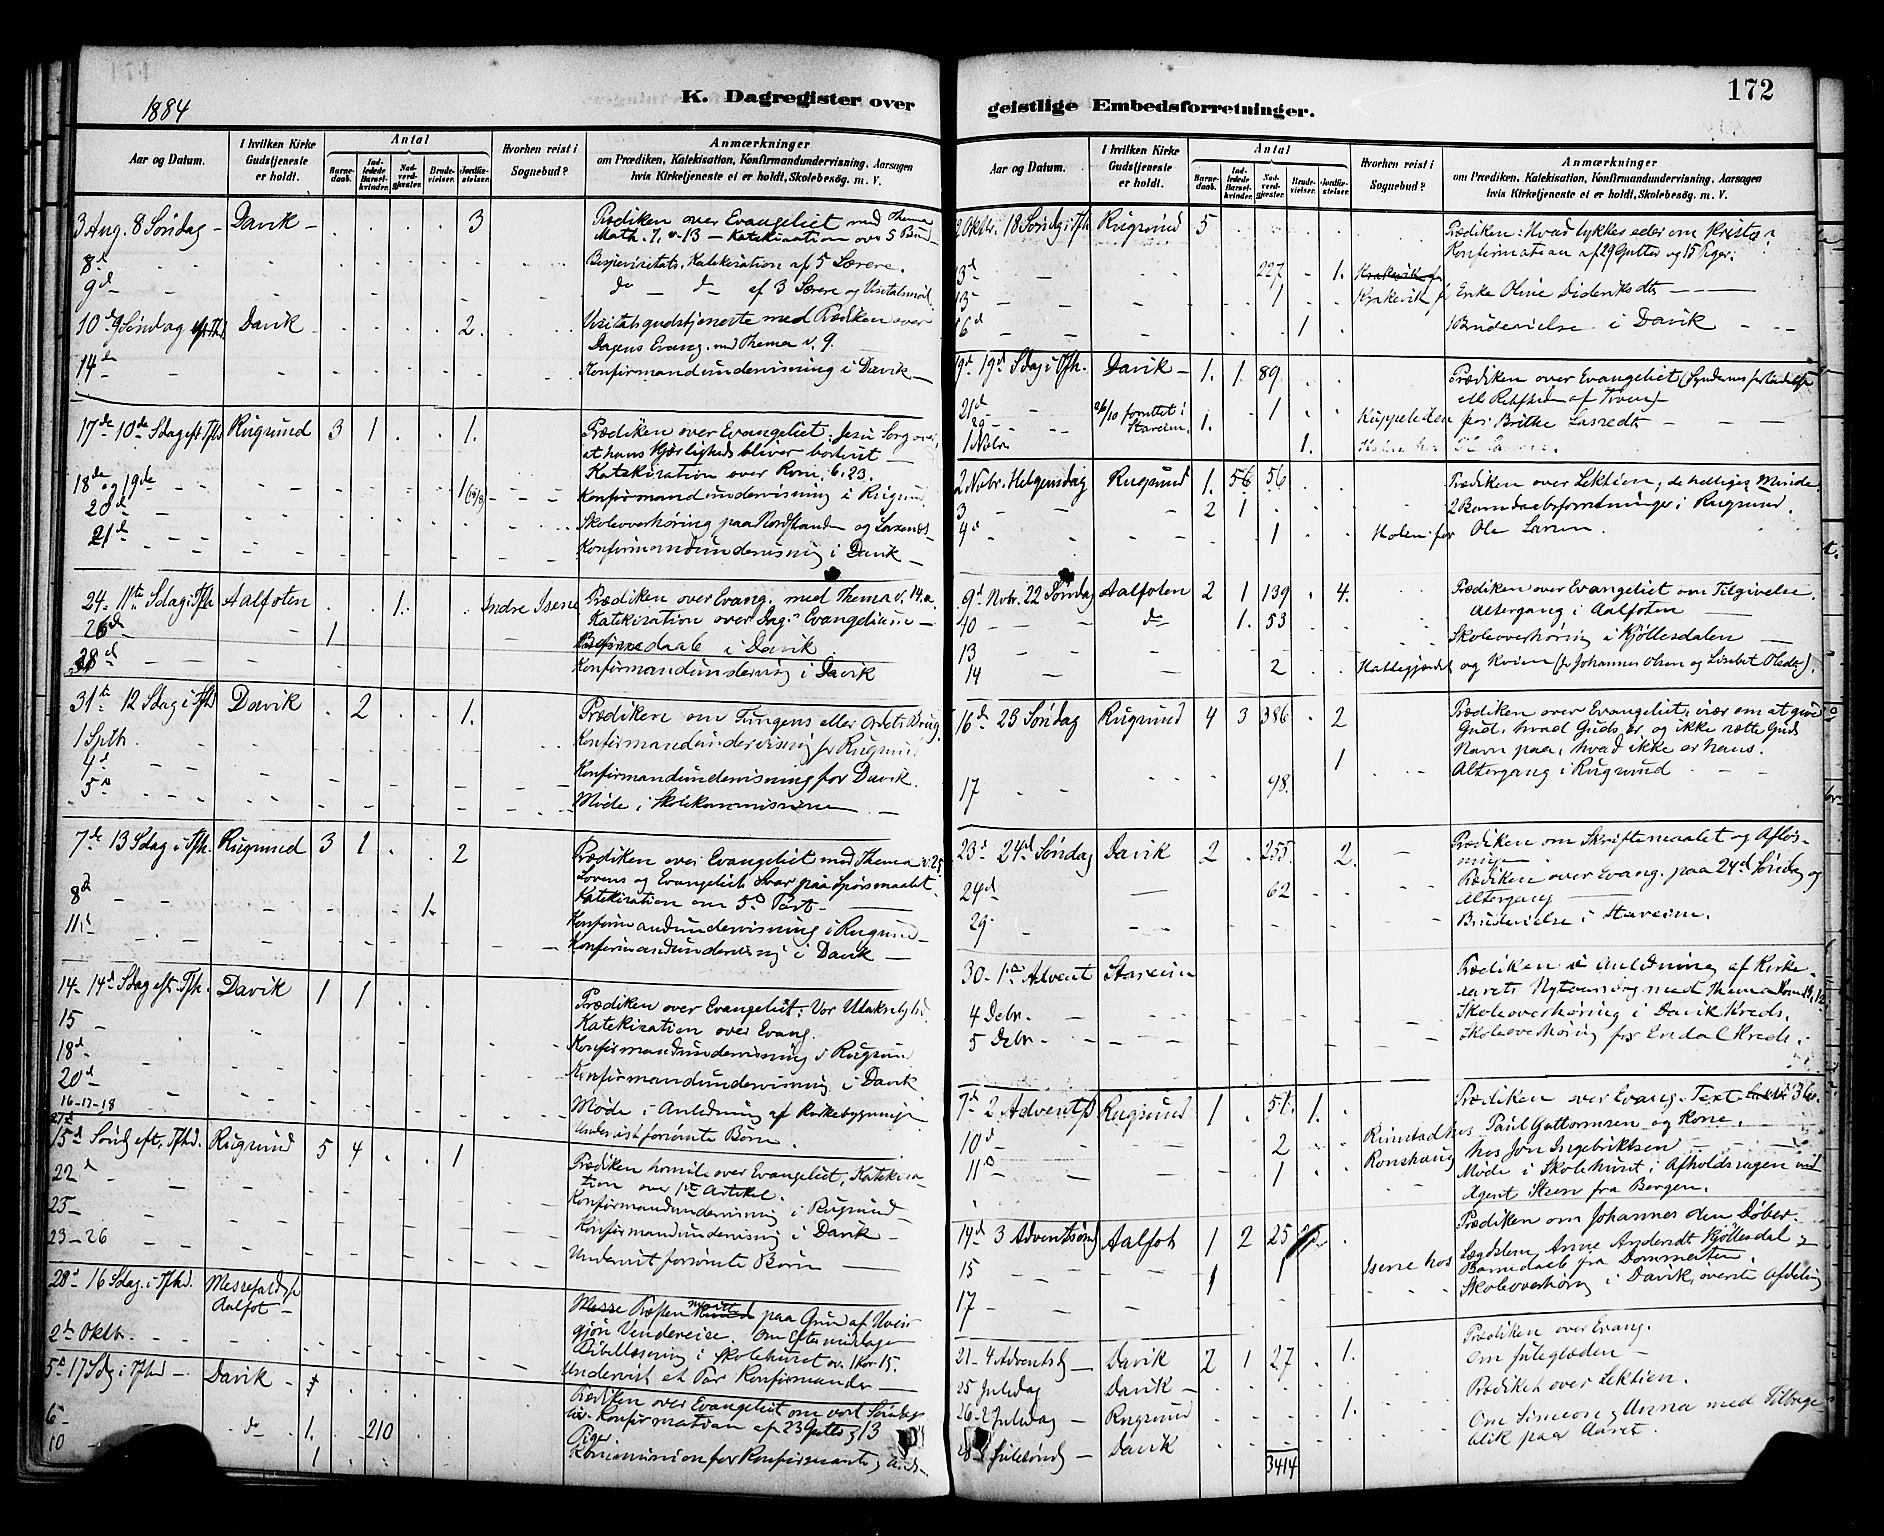 1884
K. Dagregister over
Aar og Datum.
I hvilken Kirke Gudstjeneste er holdt.
Antal
Barnedaab.
Indledede Barselkvinder.
Nadverdgjester.
Brudevielser.
Jordfæstelser.
Hvorhen reist i Sognebud?
Anmærkninger
om Prædiken, Katekisation, Konfirmandundervisning, Aarsagen
hvis Kirketjeneste ei er holdt, Skolebesøg. m. V.
3 Aug. 8 Søndag – Davik – 3 Prædiken over Evangeliet med Thema
Math. 7, v. 13 – Katekisation over 5 Bud
8d Katekisation af 5 Lærere.
9d do – do – af 3 Lærere og
10d 9 Søndag eft. Tfh. Davik – 2. Visitatsgudstjeneste med Prædiken over
Dagens Evang. med Thema v. 9.
14de Konfirmandundervisning i Davik –
17de 10de Sdag eft. Tfh. Rugsund 3 1 1. Prædiken over Evangeliet: Jesu Sorg over,
at hans Kjærlighed bliver
Katekisation over Rom. 6, 23.
18de og 19de 1 (19/8) Konfirmandundervisning i Rugsund
20d Skoleoverhøring paa Nordstranden og
21de Konfirmandundervisning i Davik –
24. 11te Sdag i Tfh Aalfoten 1. Indre Isene Prædiken over Evang. med Thema v. 14.a.
Katekisation over Dag. Evangelium –
26d 1 Barnedaab i Davik
28d Konfirmandundervisning i Davik
31te 12 Sdag i Tfh Davik 2 1. Prædiken om Tungens eller Ordets Brug
1 Sptb. Konfirmandundervisning for Rugsund
4d Konfirmandundervisning for Davik.
5d Møde i Skolekommissionen –
7de 13 Sdag i Tfh. Rugsund 3 1 2 Prædiken over Evangeliet med Thema v. 25,
Lovens og Evangeliets Svar paa Spørsmaalet.
Katekisation om 5d Part –
8d 1. Konfirmandundervisning i Rugsund –
11d Konfirmandundervisning i Davik –
14. 14d Sdag eft. Tfh. Davik 1 1 Prædiken over Evangeliet: Vor Utaknemlighed
15 Katekisation over Evang.
18d Konfirmandundervisning i Rugsund
20d Konfirmandundervisning i Davik
16–17–18 Møde i Anledning af Kirkebygninge
Undervist forsømte Børn.
21d 15d Sønd eft. Tfhd. Rugsund 5 4 1 Prædiken homile over Evangeliet, Katekisa-
tion over 1ste Artikel.
22d Konfirmandundervisning i Rugsund –
25 – Konfirmandundervisning i Davik –
23–26 Undervist forsømte Børn –
28d 16 Sdag. i Tfhd. Messefald Aalfot – Præsten maatte paa Grund af Uveir
gjøre Vendereise. Om Eftermiddagen
Bibellæsning i Skolehuset ov. 1 Kor. 15.
2de Oktb. Undervist et Par Konfirmander –
5d 17 Sdg i Tfhd – Davik – Prædiken over Evangeliet om vort Søndags
liv. Konfirmation af 23 Gutter og 13
Piger
6 – do 1. 210
10 1 Kommunion for Konfirmanter
geistlige Embedsforretninger.
172
Aar og Datum.
I hvilken Kirke Gudstjeneste er holdt.
Antal
Barnedaab.
Indledede Barselkvinder.
Nadverdgjester.
Brudevielser.
Jordfæstelser.
Hvorhen reist i Sognebud?
Anmærkninger
om Prædiken, Katekisation, Konfirmandundervisning, Aarsagen
hvis Kirketjeneste ei er holdt, Skolebesøg. m. V.
Oktbr. 18 Søndg i Tfh Rugsund 5 Prædiken: Hvad tykkes eder om Kristo?
Konfirmation af 29 Gutter og 15 Piger.
13d 227 1.
13 1 Krakevik for Enke Oline Dideriksdtr
16d 1 1 Brudevielse i Davik
19d 19d Sdag i Tfh. Davik – 1. 1. 89 Prædiken over Evangeliet (Syndernes forladelse
21d 1 Kuppeleiden for Brithe Lassedtr
29 26/10 forrettet i Stareim. 1.
1 Novbr 1.
2 Novbr. Helgensdag Rugsund 1. 56 56 Prædiken over Lektien, de helliges Minde.
3 2 1 2 Barndaabsforretninger i Rugsund.
4d 1 Holen for Ole Larsen.
9d Novbr. 22 Søndag Aalfoten 2 1 139 4. Prædiken over Evangeliet om Tilgivelse.
10 do 1. 53 Altergang i Aalfoten
13 Skoleoverhøring i Kjöllesdalen
14 2 Hattegjerdet og Kvien (for Johannes Olsen og Lisebet Olsdtr).
16de 23 Søndag Rugsund 4 3 386 2 Prædiken over Evangeliet, især om at give
Gud, hvad Guds er, og ikke sætte Guds
Navn paa, hvad ikke er hans.
17 98. 1 Altergang i Rugsund
23d 24d Søndag Davik 2 255. 2. Prædiken om Skriftemaalet og Afløs-
ning –
24d 62 Prædiken over Evang. paa 24d Søndag og
Altergang
29 Brudevielse i Stareim.
30 – 1ste Advent Stareim Prædiken i Anledning af Kirke-
aarets Nytaarsdag med Thema Rom 13, 12
4 Debr. Skoleoverhøring i Davik Kreds.
5 Debr. Skoleoverhøring for Endal Kreds.
7d 2 Advents Rugsund 1 51. 1. Prædiken over Evang. Text
10d 2 Rimstad hos Paul Guttormsen og Kone.
11d 1 Ronshaug hos Jon Ingebriktsen
Møde i Skolehuset i Afholdssagen ved
Agent Steen fra Bergen.
14d 3 Adventsønd Aalfot 1 2 25 Prædiken om Johannes den Døber.
15 1 1 Isene hos Anne Andersdt Kjöllesdal –
Barnedaab fra Dommesten.
17 Skoleoverhøring i Davik, øverste Afdeling
21 – 4 Adventsdg – Davik 2 1 27 1. Prædiken over Evang.
Om Juleglæden –
25 Juledag Davik – Prædiken over Lektien.
26 – 2 Juledag – Rugsund 1. Om Simeon og Anna med Tilbage
blik paa Aaret.
28d Julesønd – Davik
3414